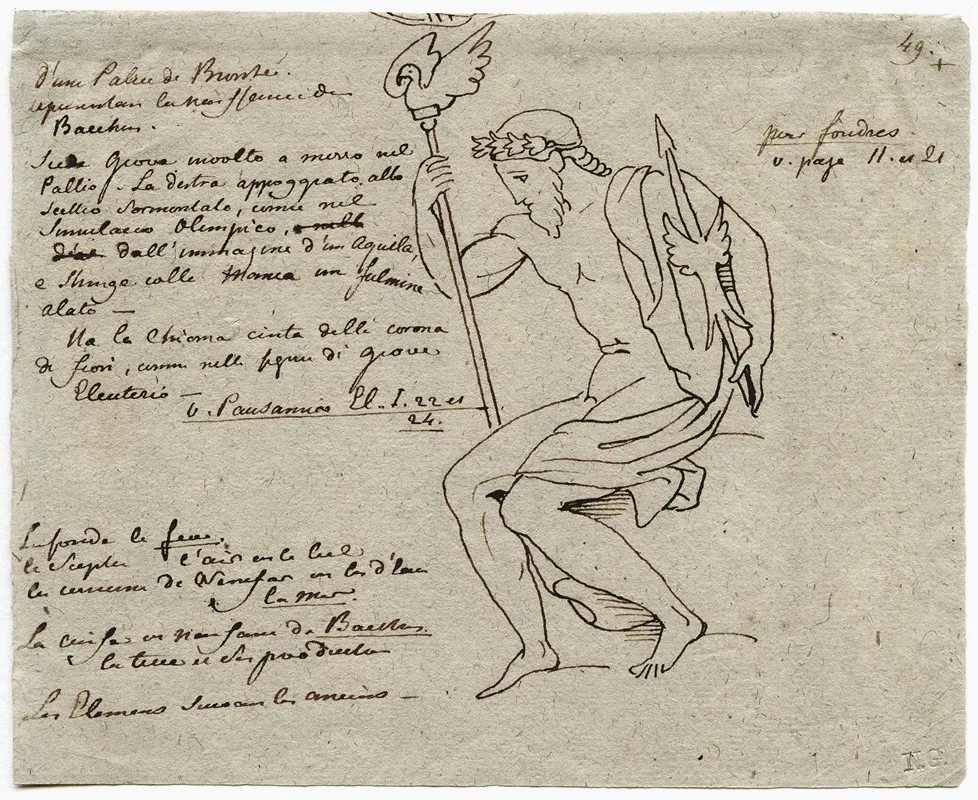 49. +
pour foudres.
v. page 11. et 21
d'une Patere de Bronze.
la naissance de
Bacchus.
Siede Giove involto a mezzo nel
Pallio. La destra appoggiata allo
Scettro sormontato, come nel
Simulacro Olimpico,
dall'immagine d'un Aquila,
e stringe colla manca un fulmine
alato —
Ha la Chioma cinta della corona
di fiori, come nella figura di Giove
Eleuterio —
v. Pausanias El. I. 22 et
24.
La foudre le feu.
le Sceptre l'air et le Ciel
la couronne de Nenufar et les d'eau
la Mer
La cuisse et naissance de Bacchus
la terre et ses productions
Les Elemens suivant les anciens —
N.G.